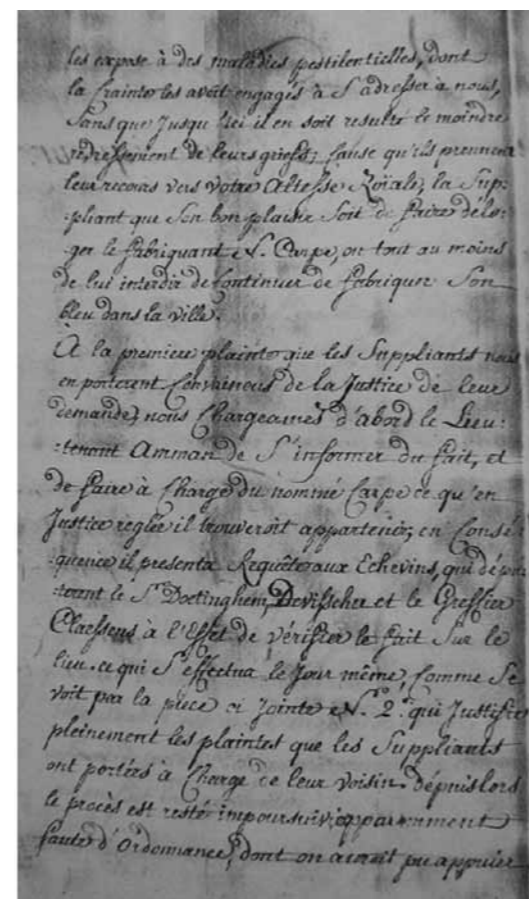 les expose à des maladies pestilentielles, dont
la Crainte les avoit engagés à S'adresser à nous,
Sans que Jusqu'Ici il en soit resulté le moindre
redressement de leurs griefs; Cause qu'ils prennent
leur recours vers Votre Altesse Roïale, la Sup:
:pliant que Son bon plaisir Soit de faire délo:
:ger le fabriquant N. Carpe, ou tout au moins
de lui interdir de Continuer de fabriquer Son
bleu dans la ville.
À la premiere plainte que les Suppliants nous
en porterent Convaincus de la Justice de leur
demande, nous Chargeames d'abord le Lieu:
:tenant Amman de S'informer du fait, et
de faire à Charge du nommé Carpe ce qu'en
Justice reglée il trouveroit appartenir, en Consé:
:quence il presenta Requête aux Echevins, qui dépu
:terent le Sr. Doetinghem, Devisscher et le Greffier
Claessens à l'Effet de vérifier le fait Sur le
lieu. ce qui S'effectua le Jour même, Comme Se
voit par la piece ci Jointe No. 2. qui Justifie
pleinement les plaintes que les Suppliants
ont portées à Charge de leur voisin. dépuis lors
le procès est resté impoursuivi apparamment
faute d'Ordonnance, dont on auroit pu appuier